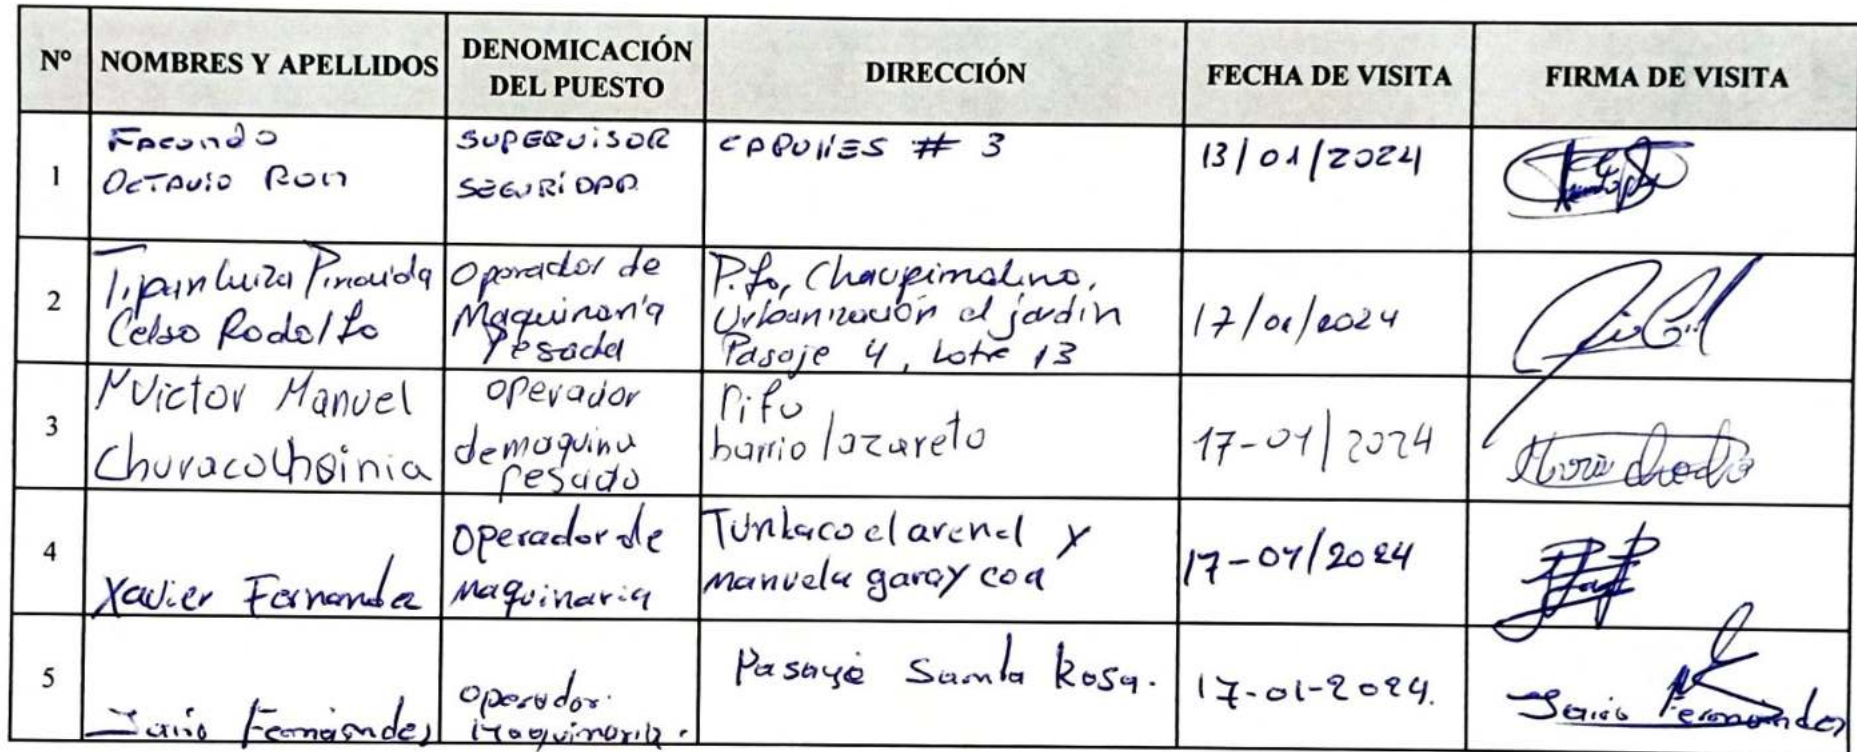 N° NOMBRES Y APELLIDOS DENOMICACIÓN DEL PUESTO DIRECCIÓN FECHA DE VISITA FIRMA DE VISITA
1
Facundo
Octavio Ron
SUPERVISOR
SEGURIDAD
CAPULIES # 3
13/01/2024
2
Tipanluiza Pinouida
Celso Rodolfo
Operador de
Maquinaria
Pesada
Pifo, Chaupimolino,
Urbanización el jardin
Pasaje 4, Lote 13
17/01/2024
3
Victor Manuel
operador
de maquina
pesado
Pifo
barrio lazareto
17-01/2024
4
Xavier Fernandez
Operador de
Maquinaria
el arenal y
Manuela garaycoa
17-01/2024
5
Fernández
Operador
Maquinaria.
Pasaje Santa Rosa.
17-01-2024.
Fernandez